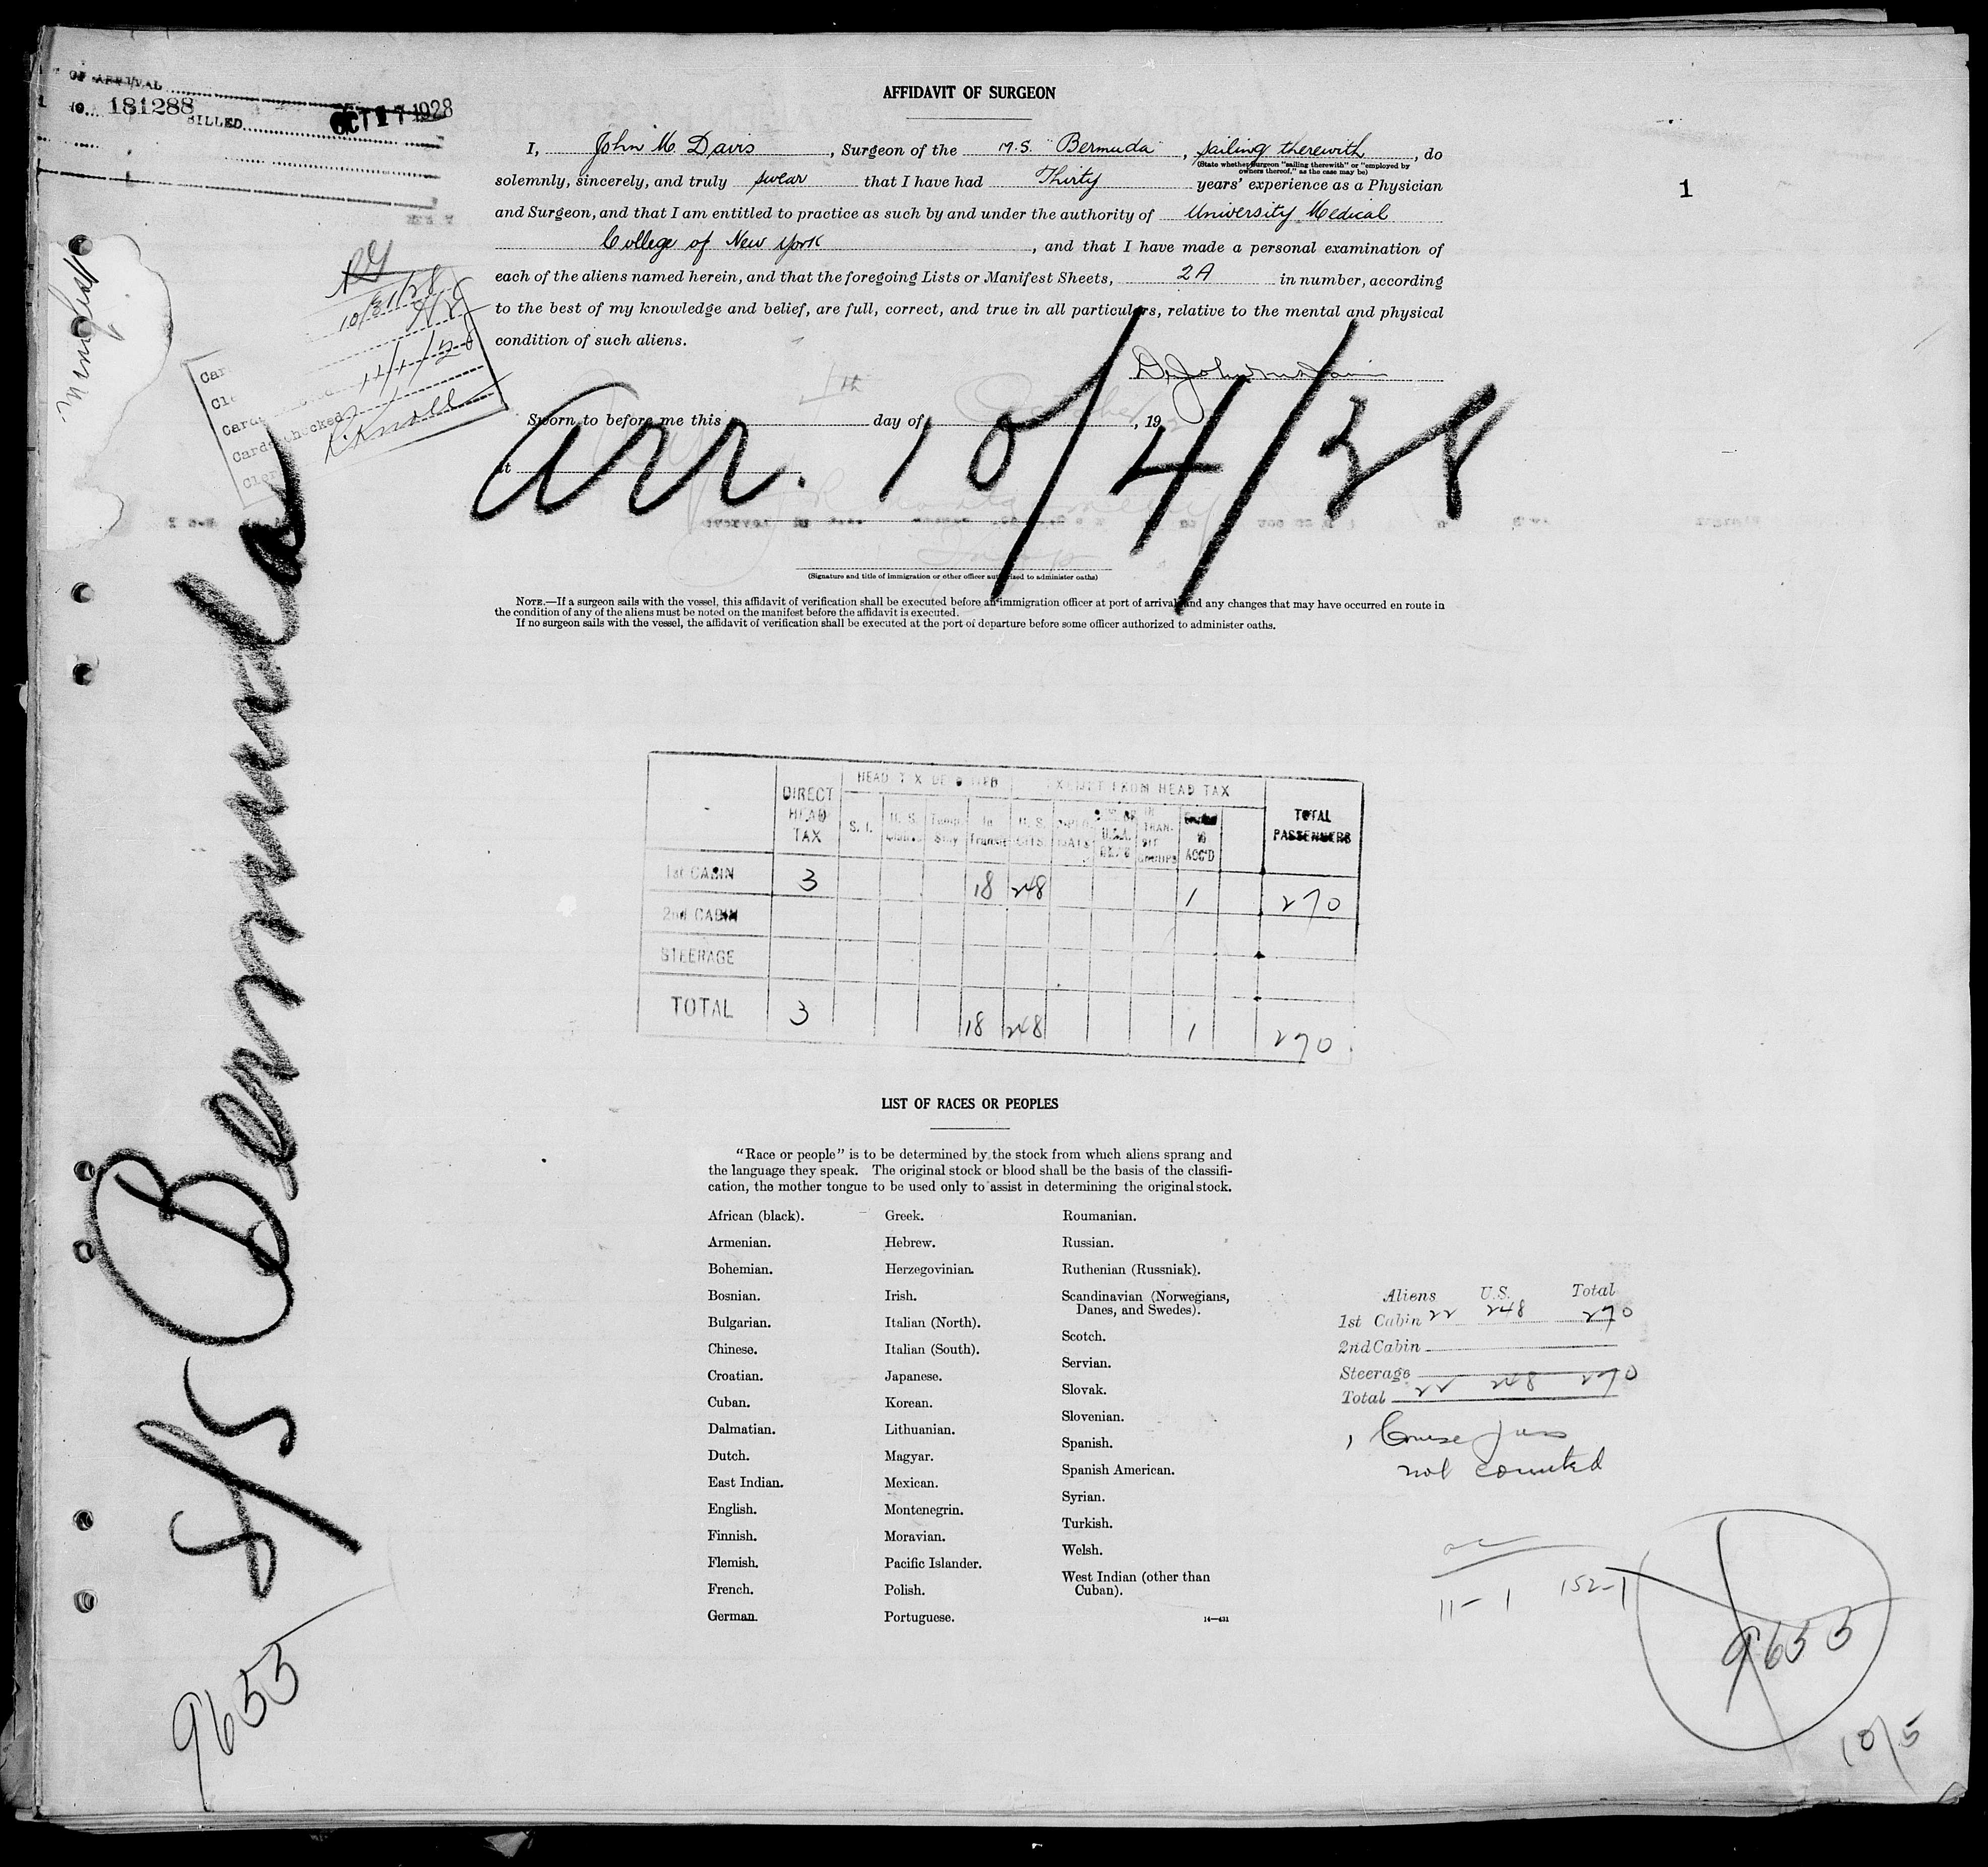 OF ARRIVAL
No. 181288
BILLED OCT 17 1928
Manifest
10/31/28
Cards checked 11/1/28
Clerk Knoll
S/S Bermuda
9655
1
AFFIDAVIT OF SURGEON
I, John M. Davis, Surgeon of the M.S. "Bermuda", sailing therewith, do
(State whether surgeon "sailing therewith" or "employed by
owners thereof," as the case may be)
solemnly, sincerely, and truly swear that I have had Thirty years' experience as a Physician
and Surgeon, and that I am entitled to practice as such by and under the authority of University Medical
College of New York, and that I have made a personal examination of
each of the aliens named herein, and that the foregoing Lists or Manifest Sheets, 2A in number, according
to the best of my knowledge and belief, are full, correct, and true in all particulars, relative to the mental and physical
condition of such aliens.
Sworn to before me this 4th day of October, 192
At
arr. 10/4/28
(Signature and title of immigration or other officer authorized to administer oaths)
NOTE.—If a surgeon sails with the vessel, this affidavit of verification shall be executed before an immigration officer at port of arrival, and any changes that may have occurred en route in
the condition of any of the aliens must be noted on the manifest before the affidavit is executed.
If no surgeon sails with the vessel, the affidavit of verification shall be executed at the port of departure before some officer authorized to administer oaths.
DIRECT HEAD TAX HEAD TAX DEPOSITED EXEMPT FROM HEAD TAX TOTAL PASSENGERS
S. I. U. S. Temp. Stay In Transit U. S. CITS. DIPLO. U.S.A. IN TRANSIT GROUPS ACC'D
1st CABIN 3 18 248 1 270
2nd CABIN
STEERAGE
TOTAL 3 18 248 1 270
LIST OF RACES OR PEOPLES
"Race or people" is to be determined by the stock from which aliens sprang and
the language they speak. The original stock or blood shall be the basis of the classifi-
cation, the mother tongue to be used only to assist in determining the original stock.
African (black).
Armenian.
Bohemian.
Bosnian.
Bulgarian.
Chinese.
Croatian.
Cuban.
Dalmatian.
Dutch.
East Indian.
English.
Finnish.
Flemish.
French.
German.
Greek.
Hebrew.
Herzegovinian.
Irish.
Italian (North).
Italian (South).
Japanese.
Korean.
Lithuanian.
Magyar.
Mexican.
Montenegrin.
Moravian.
Pacific Islander.
Polish.
Portuguese.
Roumanian.
Russian.
Ruthenian (Russniak).
Scandinavian (Norwegians,
Danes, and Swedes).
Scotch.
Servian.
Slovak.
Slovenian.
Spanish.
Spanish American.
Syrian.
Turkish.
Welsh.
West Indian (other than
Cuban).
14—431
Aliens U.S. Total
1st Cabin 22 248 270
2nd Cabin
Steerage
Total 22 248 270
1 Cruise pass
not counted
11-1 152-1
9655
10/5